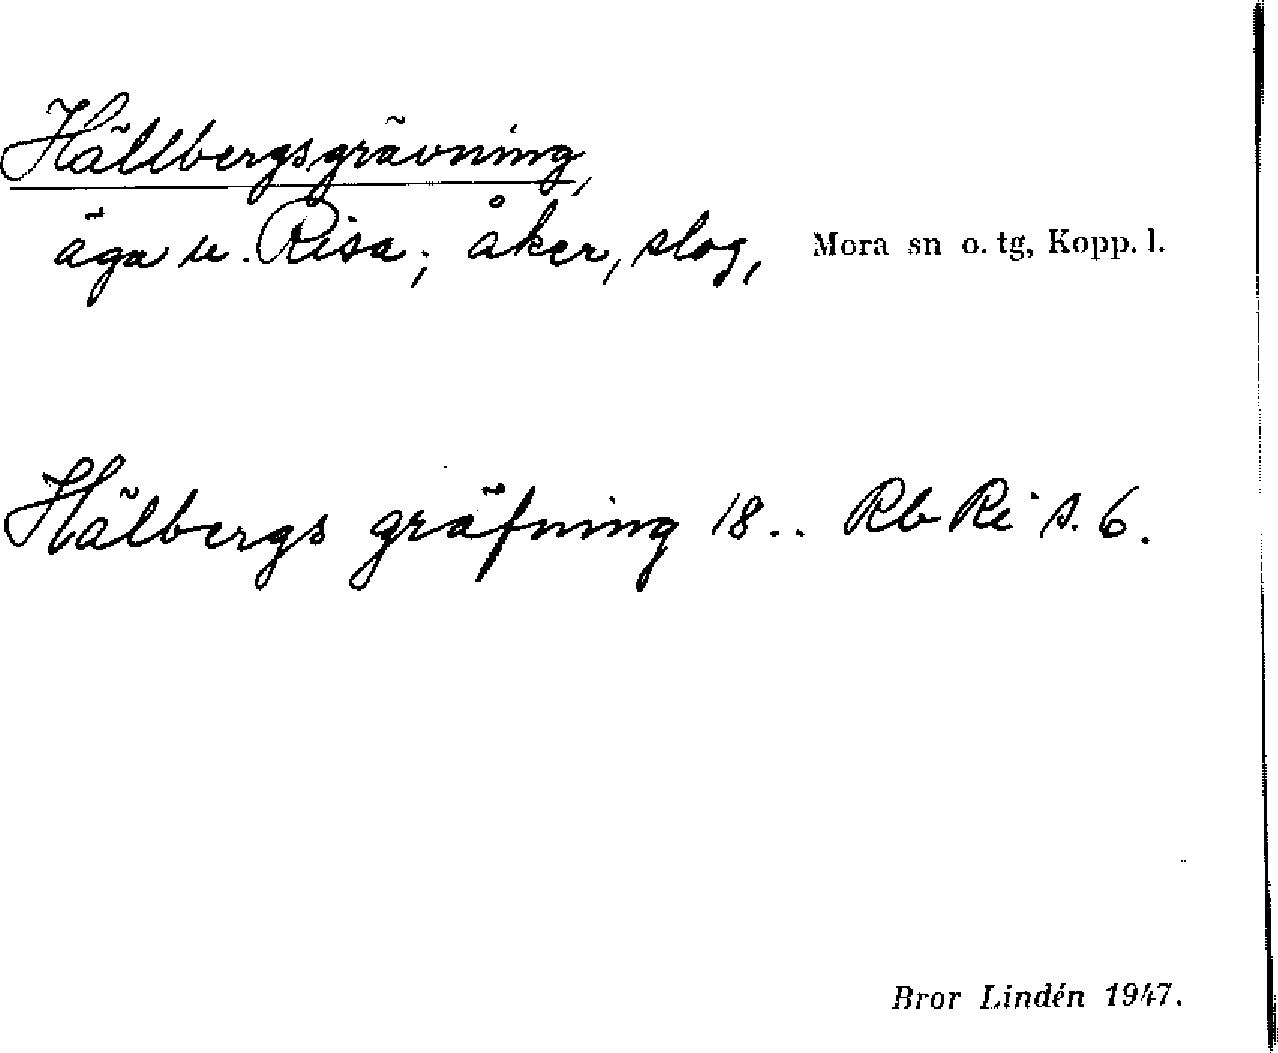 Hällbergsgrävning,
äga u. Risa; åker, slog, Mora sn o. tg, Kopp. l.
Hälbergs gräfning 18.. Rb Ri s. 6.
Bror Lindén 1947.